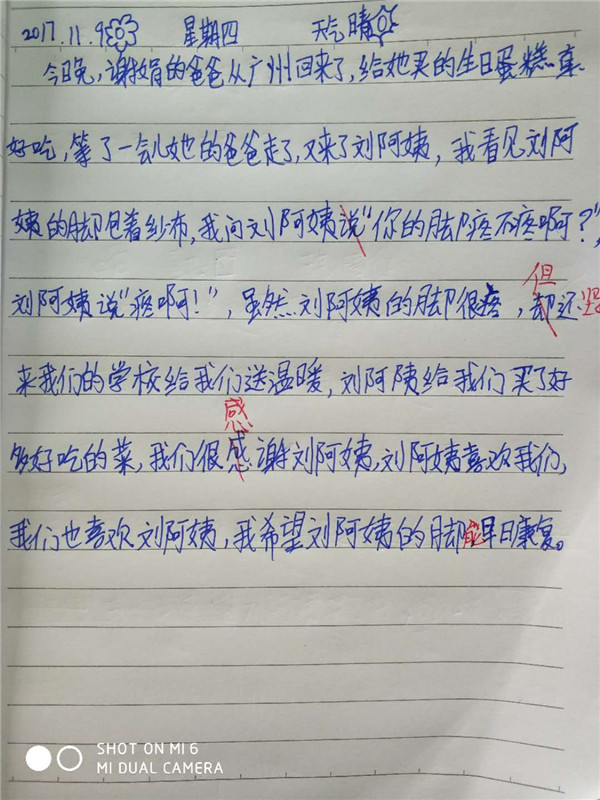 2017.11.9 星期四 天气晴
今日晚,谢娟的爸爸从广州回来了,给她买的生日蛋糕真
好吃,等了一会儿她的爸爸走了,又来了刘阿姨,我看见刘阿
姨的脚包着纱布,我问刘阿姨说“你的脚疼不疼啊?”,
但
刘阿姨说“疼啊!”,虽然刘阿姨的脚很疼,却还坚
来我们的学校给我们送温暖,刘阿姨给我们买了好
感
多好吃的菜,我们很感谢刘阿姨,刘阿姨喜欢我们,
我们也喜欢刘阿姨,我希望刘阿姨的脚能早日康复。
SHOT ON MI 6
MI DUAL CAMERA